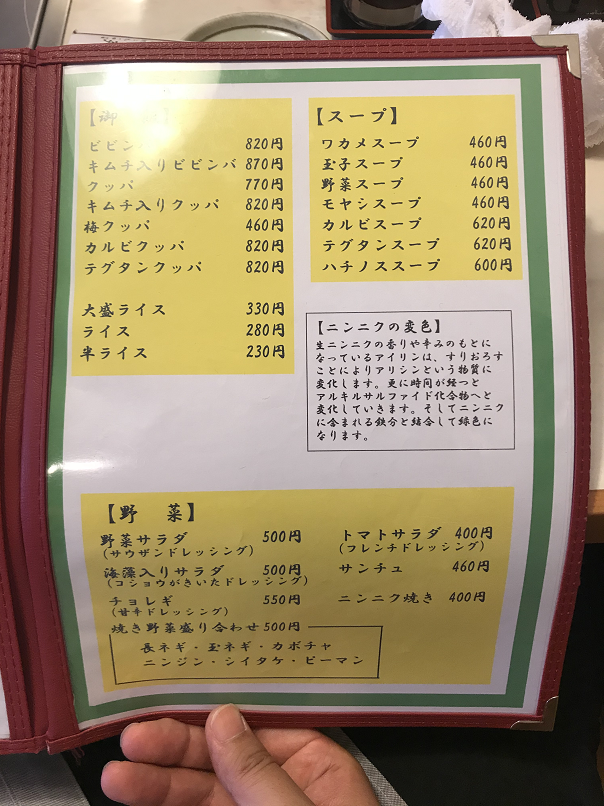 【御
ビビン 820円
キムチ入りビビンバ 870円
クッパ 770円
キムチ入りクッパ 820円
梅クッパ 460円
カルビクッパ 820円
テグタンクッパ 820円
大盛ライス 330円
ライス 280円
半ライス 230円
【スープ】
ワカメスープ 460円
玉子スープ 460円
野菜スープ 460円
モヤシスープ 460円
カルビスープ 620円
テグタンスープ 620円
ハチノススープ 600円
【ニンニクの変色】
生ニンニクの香りや辛みのもとに
なっているアイリンは、すりおろす
ことによりアリシンという物質に
変化します。更に時間が経つと
アルキルサルファイド化合物へと
変化していきます。そしてニンニク
に含まれる鉄分と結合して緑色に
なります。
【野 菜】
野菜サラダ 500円
(サウザンドレッシング)
海藻入りサラダ 500円
(コショウがきいたドレッシング)
チョレギ 550円
(甘辛ドレッシング)
焼き野菜盛り合わせ 500円
長ネギ・玉ネギ・カボチャ
ニンジン・シイタケ・ピーマン
トマトサラダ 400円
(フレンチドレッシング)
サンチュ 460円
ニンニク焼き 400円